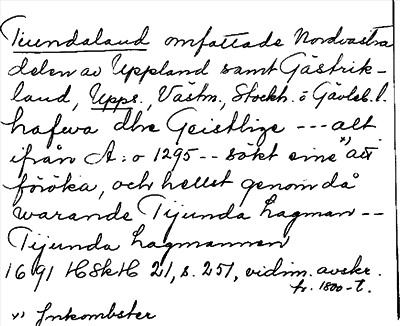 Tiundaland omfattade Nordvästra
delen av Uppland samt Gästrik-
land, Upps., Västm., Stockh. o Gävleb. l.
hafwa dhe Geistlige --- alt
ifrån A:o 1295 -- sökt sine x) att
föröka, och hellst genom då
warande Tijunda Lagman --
Tijunda Lagmannen
1691 HSkH 21, s. 251, vidim. avskr.
fr. 1800-t.
x) Inkombster